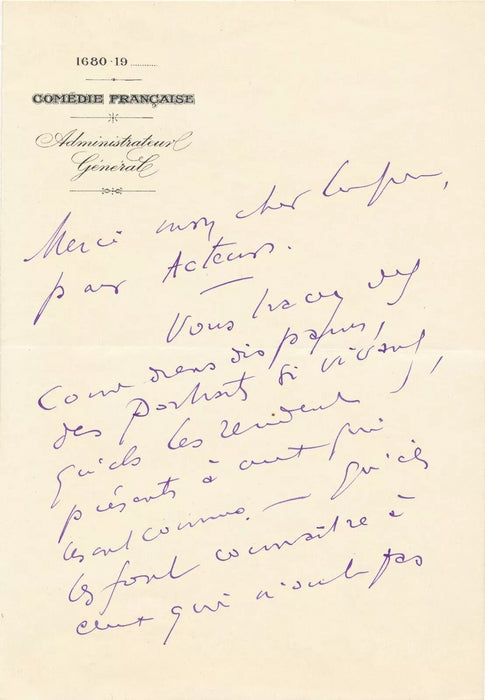 1680-19
COMÉDIE FRANÇAISE
Administrateur
Général
Merci mon cher
pour Acteurs.
Vous tracez des
Comédiens disparus,
des portraits si vivants,
qu'ils les rendent
présents à ceux qui
les ont connus. — qu'ils
les font connaître à
ceux qui n'ont pas